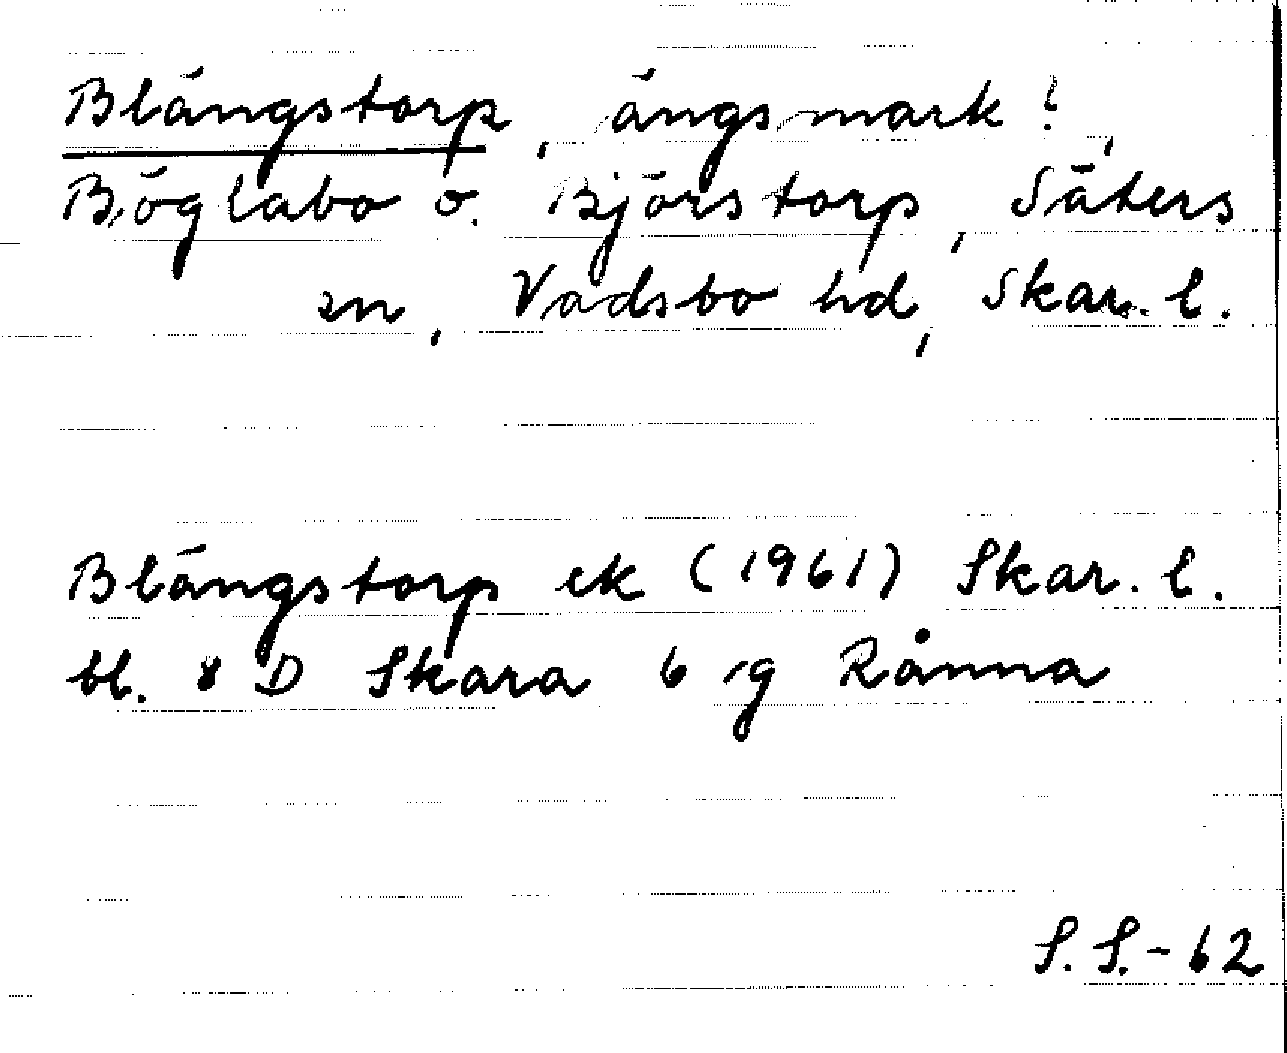 Blängstorp, ängsmark!,
Böglabo o. Björstorp, Säters
sn, Vadsbo hd, Skar. l.
Blängstorp ek (1961) Skar. l.
bl. 8 D Skara 6 g Rånna
S.S.-62